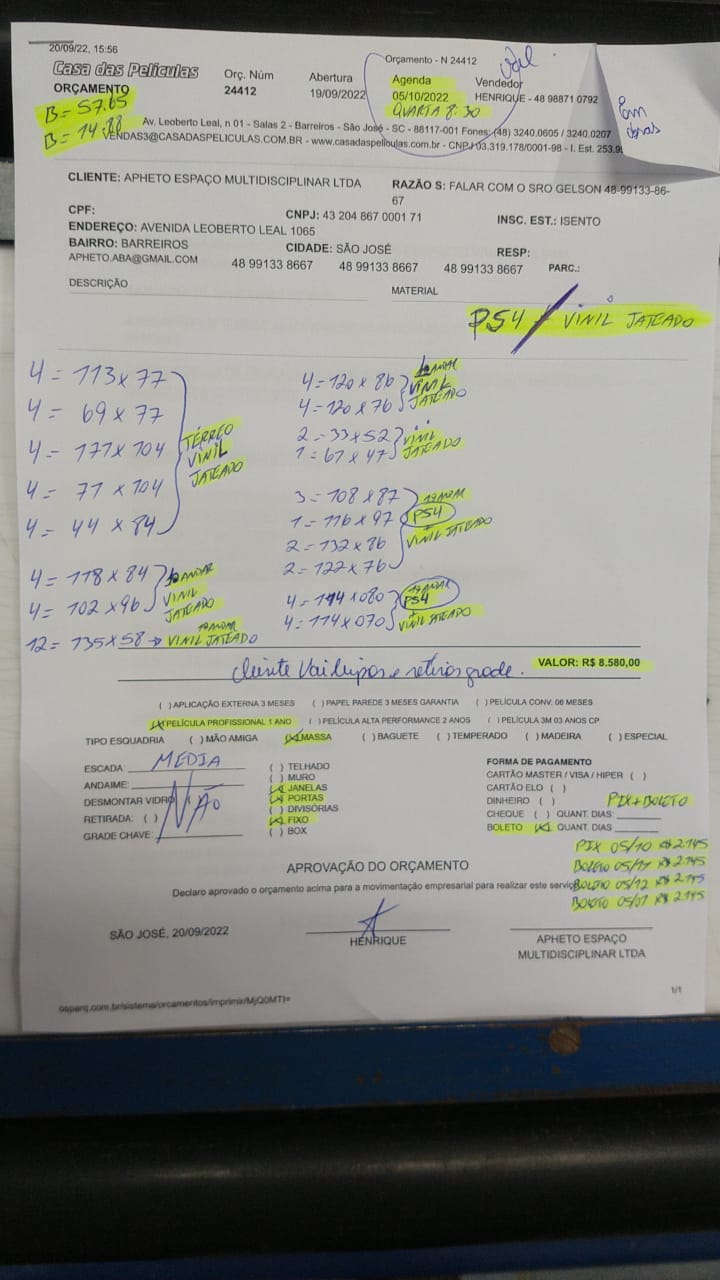 20/09/22, 15:56
Orçamento - N 24412
Casa das Películas
ORÇAMENTO
Orç. Núm
24412
Abertura
19/09/2022
Agenda
05/10/2022
QUARTA 8:30
Vendedor
HENRIQUE - 48 98871 0792
Em
obras
B = 57.65
B = 14.88
Av. Leoberto Leal, n 01 - Salas 2 - Barreiros - São José - SC - 88117-001 Fones: (48) 3240.0605 / 3240.0207
VENDAS3@CASADASPELICULAS.COM.BR - www.casadaspeliculas.com.br - CNPJ 03.319.178/0001-98 - I. Est. 253.9
CLIENTE: APHETO ESPAÇO MULTIDISCIPLINAR LTDA
RAZÃO S: FALAR COM O SRO GELSON 48-99133-86-
67
CPF:
CNPJ: 43 204 867 0001 71
INSC. EST.: ISENTO
ENDEREÇO: AVENIDA LEOBERTO LEAL 1065
BAIRRO: BARREIROS
CIDADE: SÃO JOSÉ
RESP:
APHETO.ABA@GMAIL.COM
48 99133 8667 48 99133 8667 48 99133 8667
PARC.:
DESCRIÇÃO
MATERIAL
PS4 / VINIL JATEADO
4 = 113 x 77
4 = 69 x 77
4 = 177 x 104
4 = 77 x 104
4 = 44 x 84
TÉRREO
VINIL
JATEADO
4 = 118 x 84
4 = 102 x 96
ANDAR
VINIL
JATEADO
12 = 135 x 58 → VINIL JATEADO
4 = 120 x 86
4 = 120 x 76
ANDAR
VINIL
JATEADO
2 = 33 x 52
1 = 67 x 47
VINIL
JATEADO
3 = 108 x 87
1 = 116 x 97
2 = 132 x 86
2 = 122 x 76
ANDAR
PS4
VINIL JATEADO
4 = 114 x 080
4 = 114 x 070
ANDAR
PS4
+
VINIL JATEADO
cliente vai limpar e retirar grade.
VALOR: R$ 8.580,00
( ) APLICAÇÃO EXTERNA 3 MESES ( ) PAPEL PAREDE 3 MESES GARANTIA ( ) PELÍCULA CONV. 06 MESES
(X) PELÍCULA PROFISSIONAL 1 ANO ( ) PELÍCULA ALTA PERFORMANCE 2 ANOS ( ) PELÍCULA 3M 03 ANOS CP
TIPO ESQUADRIA ( ) MÃO AMIGA (X) MASSA ( ) BAGUETE ( ) TEMPERADO ( ) MADEIRA ( ) ESPECIAL
ESCADA: MEDIA
ANDAIME:
DESMONTAR VIDRO
RETIRADA: ( )
GRADE CHAVE:
NÃO
( ) TELHADO
( ) MURO
(X) JANELAS
(X) PORTAS
( ) DIVISÓRIAS
(X) FIXO
( ) BOX
FORMA DE PAGAMENTO
CARTÃO MASTER / VISA / HIPER ( )
CARTÃO ELO ( )
DINHEIRO ( )
PIX + BOLETO
CHEQUE ( ) QUANT. DIAS:
BOLETO (X) QUANT. DIAS
PIX 05/10 R$ 2.145
BOLETO 05/11 R$ 2.145
BOLETO 05/12 R$ 2.145
BOLETO 05/01 R$ 2.145
APROVAÇÃO DO ORÇAMENTO
Declaro aprovado o orçamento acima para a movimentação empresarial para realizar este serviço
SÃO JOSÉ, 20/09/2022
HENRIQUE
APHETO ESPAÇO
MULTIDISCIPLINAR LTDA
1/1
osperq.com.br/sistema/orcamentos/imprimir/MjQ0MTI=